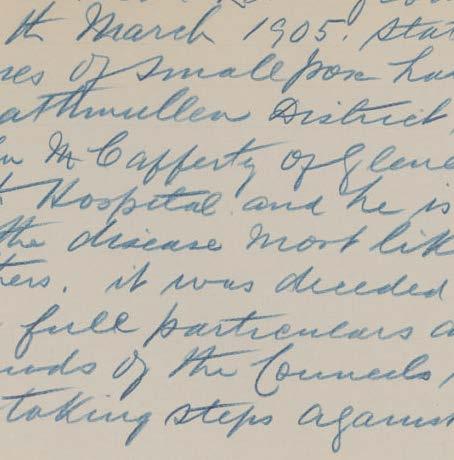 th March 1905. stat
ses of smallpox ha
athmullen District,
hn McCafferty of Glene
t Hospital and he is
the disease most lik
thers. it was decided
full particulars a
nds of the Councils
taking steps against